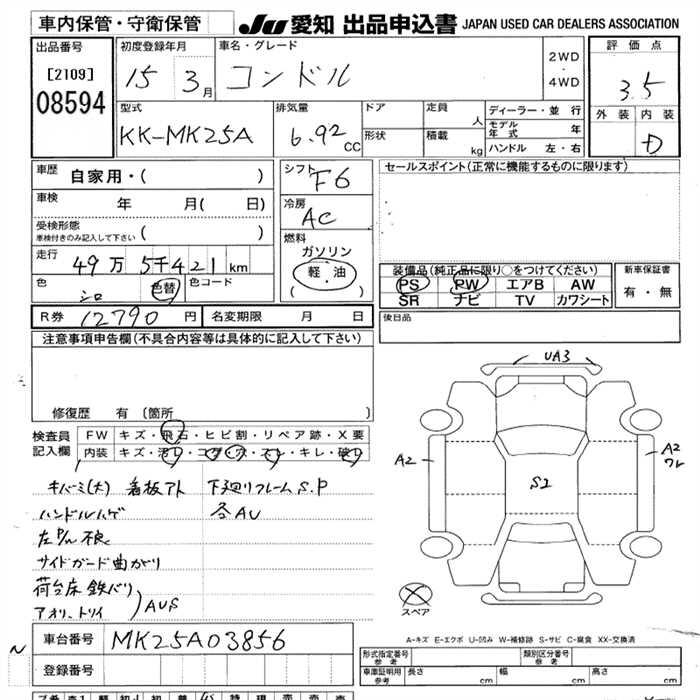 車内保管・守衛保管 JU 愛知 出品申込書 JAPAN USED CAR DEALERS ASSOCIATION
出品番号 初度登録年月 車名・グレード 評価点
[2109] 15 3月 コンドル 2WD・4WD 3.5
08594 型式 排気量 ドア 定員 人 ディーラー・並行 外装 内装
KK-MK25A 6.92 CC 形状 積載 kg モデル年式 年 D
ハンドル 左・右
車歴 自家用・( ) シフト F6 セールスポイント(正常に機能するものに限ります)
車検 年 月( 日) 冷房 AC
受検形態 車検付きのみ記入して下さい ( ) 燃料
走行 49万5千421km ガソリン 装備品(純正品に限り○をつけてください) 新車保証書
色 シロ 色替 色コード (軽・油) PS PW エアB AW 有・無
SR ナビ TV カワシート
R券 12790円 名変期限 月 日 後日品
注意事項申告欄(不具合内容等は具体的に記入して下さい)
UA3
修復歴 有(箇所 )
検査員記入欄 FW キズ・飛石・ヒビ割・リペア跡・X要
内装 キズ・汚レ・コゲ・穴・スレ・キレ・破レ
A2 S2 A2 ワレ
キバミ(大) 看板アト 下廻りフレームS.P
ハンドルハゲ 各AU
不良
サイドガード曲がり
荷台床鉄バリ
アオリ、トリイ )AUS
スペア
A-キズ E-エクボ U-凹み W-補修跡 S-サビ C-腐食 XX-交換済
N 車台番号 MK25A03856
登録番号
形式指定番号 参考 類別区分番号 参考
車庫証明用 参考 長さ cm 幅 cm 高さ cm